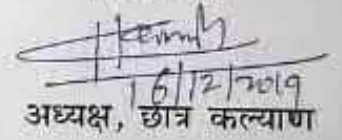 16/12/2019
अध्यक्ष, छात्र कल्याण